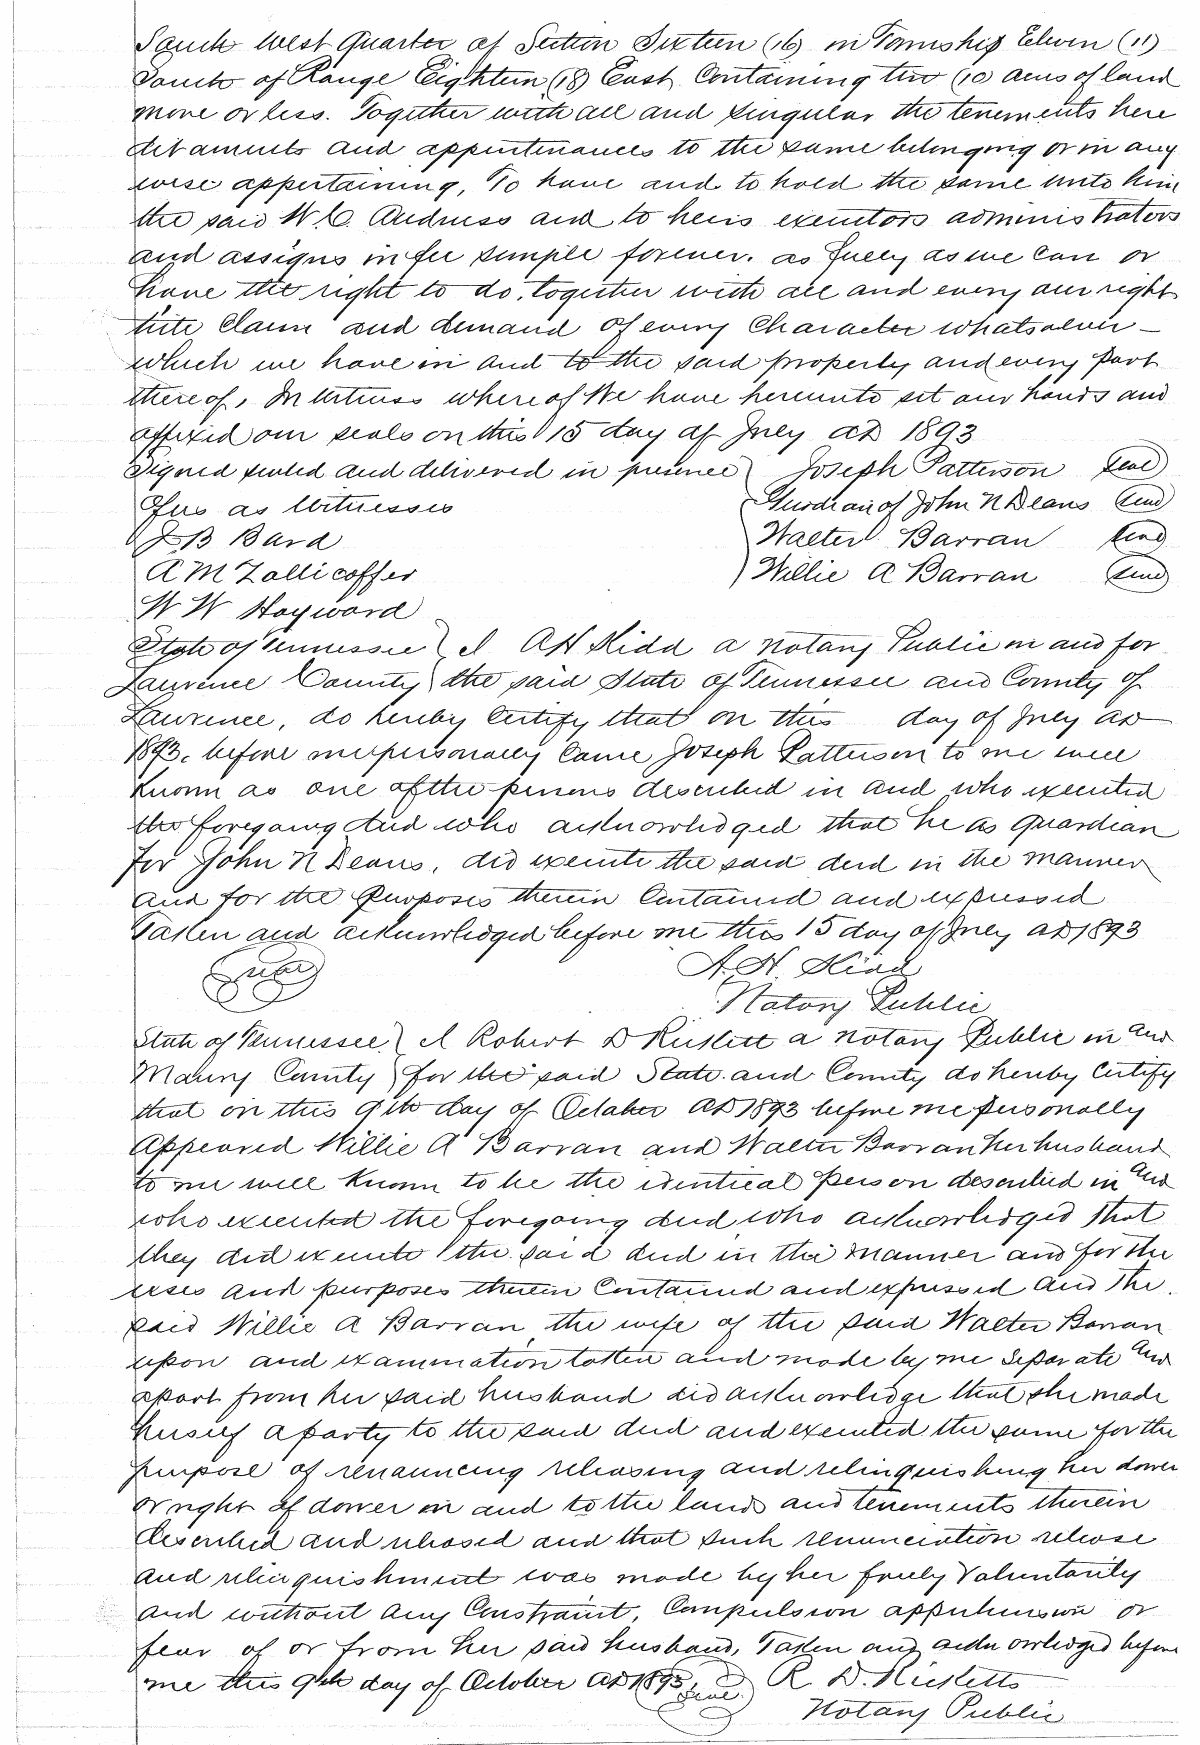 South West Quarter of Section Sixteen (16) in Township Eleven (11)
South of Range Eighteen (18) East Containing ten (10) acres of land
more or less. Together with all and singular the tenements here
ditaments and appurtenances to the same belonging or in any
wise appertaining, To have and to hold the same unto him
the said W. C. Andruss and to heirs executors administrators
and assigns in fee simple forever. as fully as we can or
have the right to do, together with all and every our right
title Claim and demand of every Character whatsoever —
which we have in and to the said property and every part
thereof, In witness whereof We have hereunto set our hands and
affixed our seals on this 15 day of July AD 1893
Signed sealed and delivered in presence) Joseph Patterson (seal)
Of us as Witnesses Guardian of John N Deans (seal)
J B Bard Walter Barran (seal)
A M Zollicoffer ) Willie A Barran (seal)
W W Hayward
State of Tennessee } I A H Kidd a Notary Public in and for
Laurence County ) the said State of Tennessee and County of
Lawrence, do hereby Certify that on this day of July AD
1893, before me personally Came Joseph Patterson to me well
Known as one of the persons described in and who executed
the foregoing deed who acknowledged that he as guardian
for John N Deans, did execute the said deed in the manner
and for the Purposes therein Contained and expressed
Taken and acknowledged before me this 15 day of July AD 1893
A. H. Kidd
Notary Public
State of Tennessee } I Robert D Rickett a Notary Public in and
Maury County ) for the said State and County do hereby Certify
that on this 9th day of October AD 1893 before me personally
Appeared Willie A Barran and Walter Barran her husband
to me well known to be the identical person described in and
who executed the foregoing deed who acknowledged that
they did execute the said deed in the manner and for the
uses and purposes therein Contained and expressed and the
said Willie A Barran the wife of the said Walter Barran
upon and examination taken and made by me separate and
apart from her said husband did acknowledge that she made
herself a party to the said deed and executed the same for the
purpose of renouncing releasing and relinquishing her dower
or right of dower in and to the lands and tenements therein
described and released and that such renunciation release
and relinquishment was made by her freely Voluntarily
and without any Constraint, Compulsion apprehension or
fear of or from her said husband, Taken and acknowledged before
me this 9th day of October AD 1893, Seal R. D. Ricketts
Notary Public